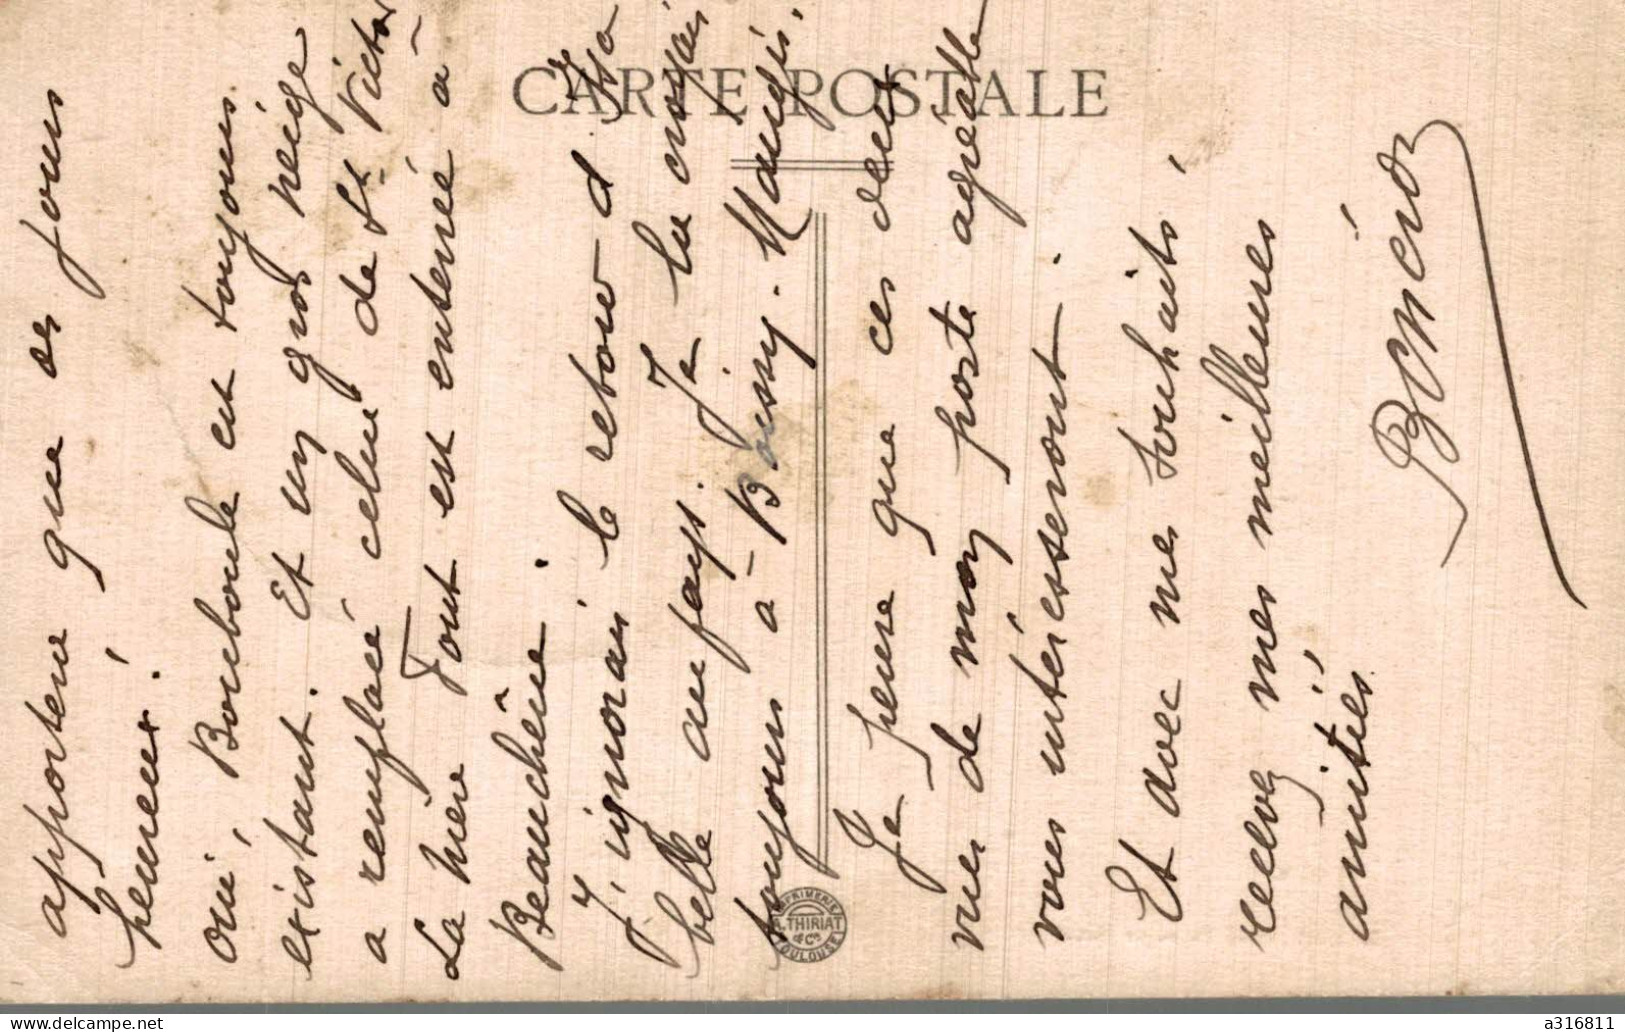 CARTE POSTALE
apportent que des jours
heureux.
Oui, Bourboule est toujours
existant. Et un gros neige
a remplacé celui de St. Victor
La mère Tout est enterrée à
Beauchêne.
J'ignorais le retour d
belle au pays. Je la croyais
toujours à Boissy-Maugis.
Je pense que ces deux
vues de mon poste agréable
vous intéresseront.
Et avec mes souhaits,
recevez mes meilleures
amitiés
IMPRIMERIE
A. THIRIAT
& Cie
TOULOUSE
a316811
www.delcampe.net